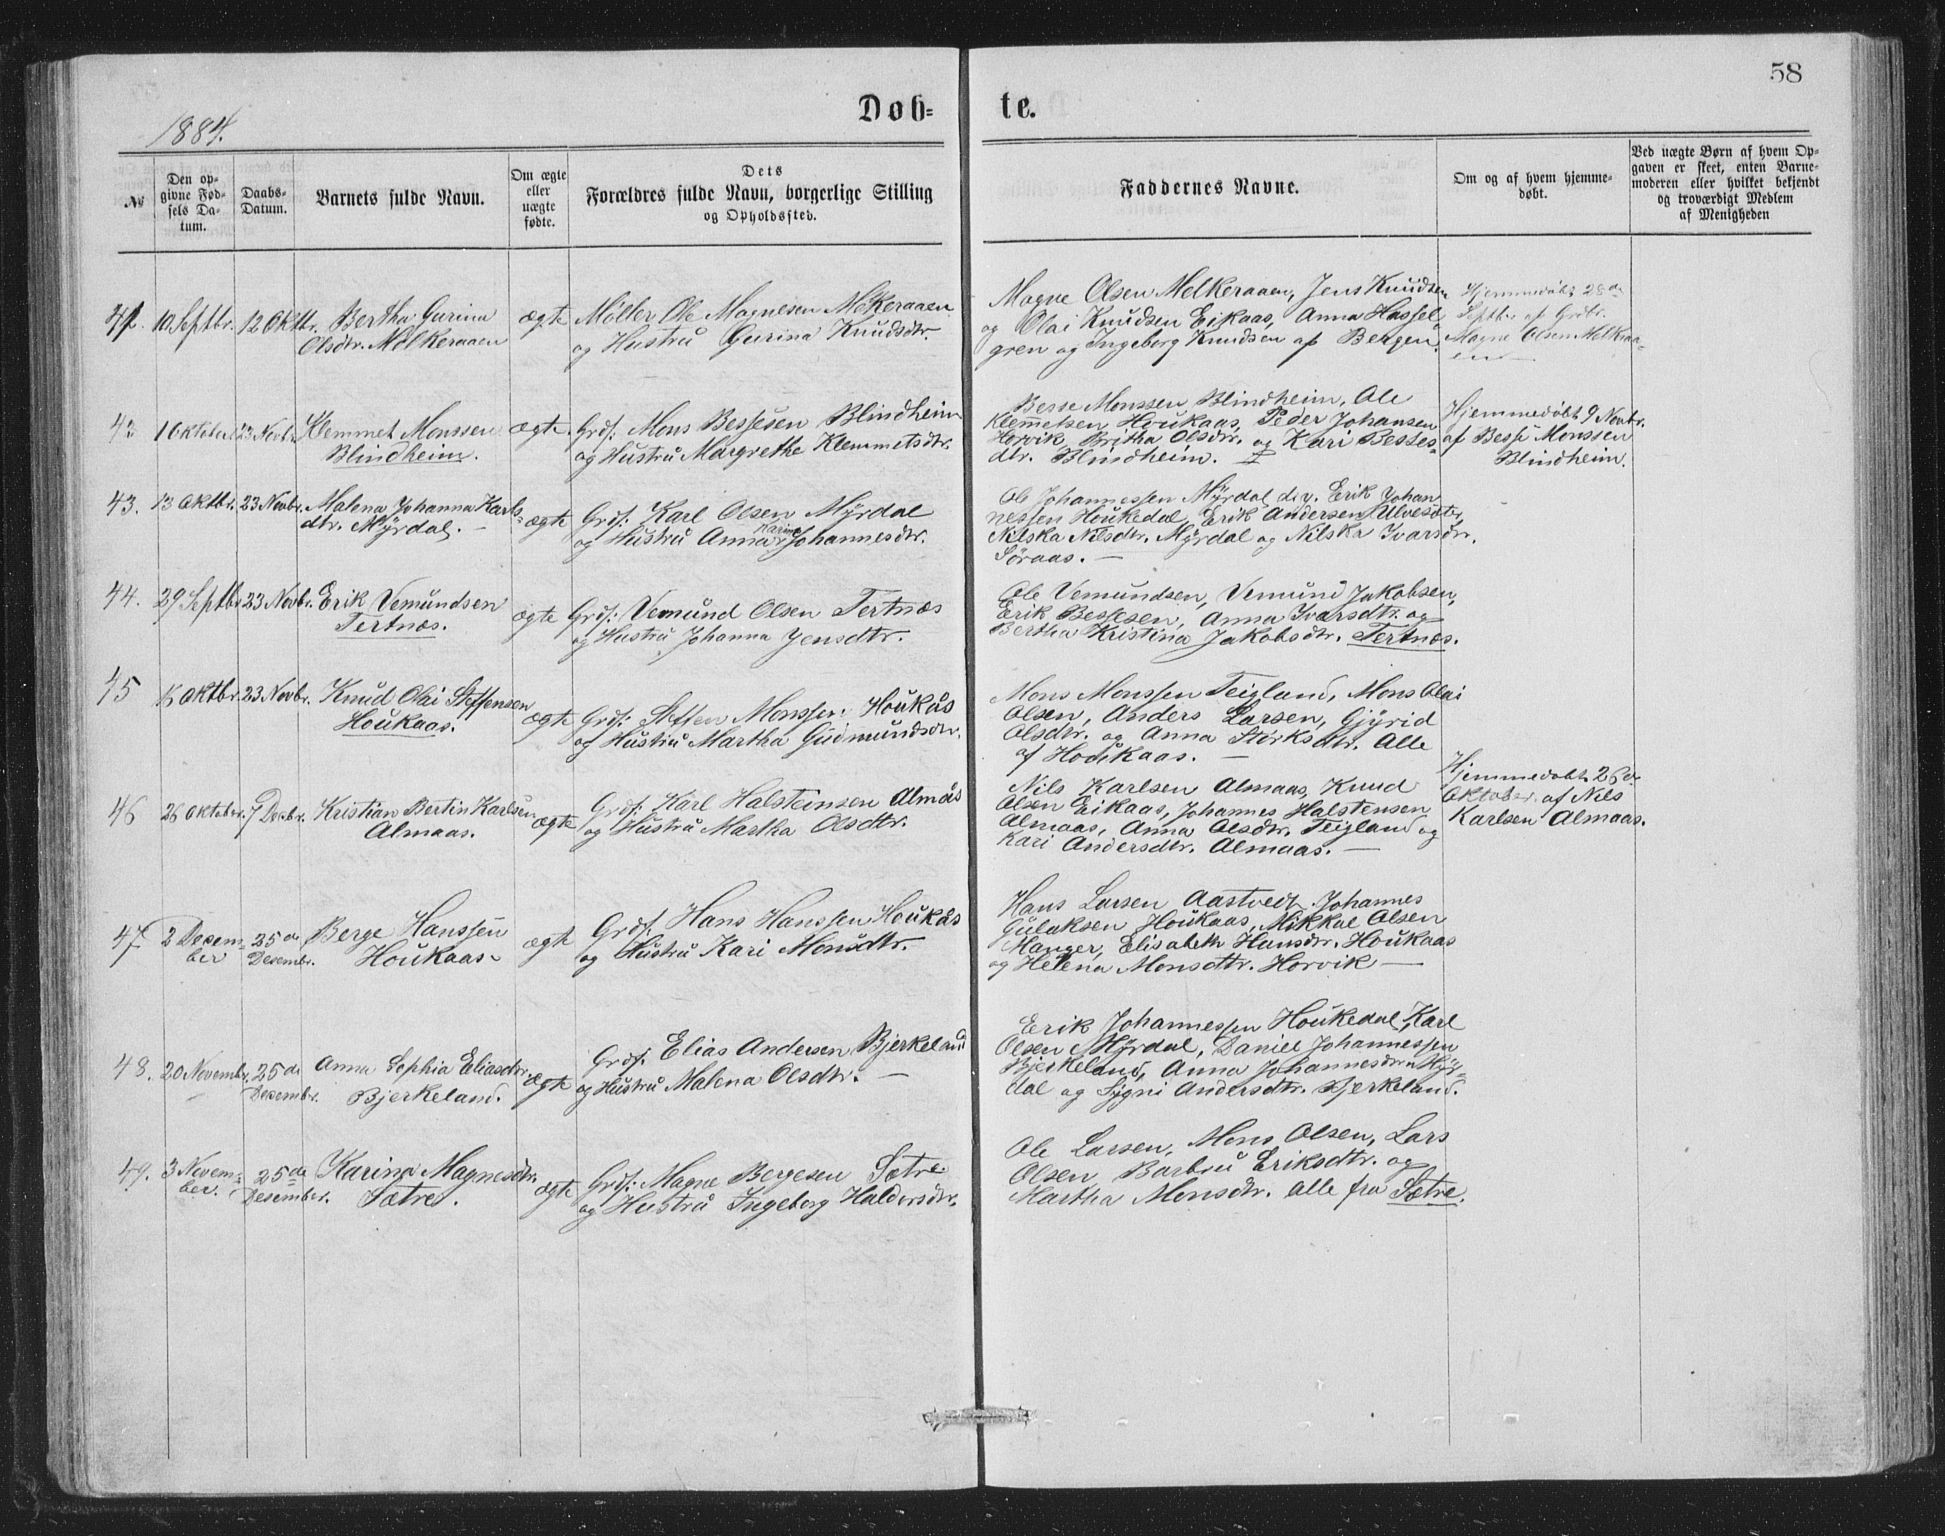 58
1884.
Døb-
te.
№
Den op-
givne Fød-
sels Da-
tum.
Daabs-
Datum.
Barnets fulde Navn.
Om ægte
eller
uægte
fødte.
Dets
Forældres fulde Navn, borgerlige Stilling
og Opholdssted.
Faddernes Navne.
Om og af hvem hjemme-
døbt.
Ved uægte Børn af hvem Op-
gaven er skeet, enten Barne-
moderen eller hvilket bekjendt
og troværdigt Medlem
af Menigheden
41. 10 Septbr. 12 Oktbr.
Bertha Gurina
Olsdtr. Melkeraaen
ægte
Møller Ole Magnesen Melkeraaen
og Hustru Gurina Knudsdtr.
Magne Olsen Melkeraaen, Jens Knudsen
og Olai Knudsen Eikaas, Anna Hassel-
gren og Ingeborg Knudsen af Bergen.
Hjemmedøbt 28de
Septbr af Grdbr.
Magne Olsen Melkeraa-
en
42 1 Oktober 23 Novbr.
Klemmet Monssen
Blindheim.
ægte.
Grdf. Mons Bessesen Blindheim
og Hustru Margrethe Klemmetsdtr.
Besse Monssen Blindheim, Ole
Klemetsen Houkaas, Peder Johansen
Horvik, Britha Olsdtr. og Kari Besses-
dtr. Blindheim.
Hjemmedøbt 9 Novbr.
af Besse Monssen
Blindheim.
43. 13 Oktbr. 23 Novbr.
Malena Johanna Karls-
dtr. Myrdal.
ægte
Grdf: Karl Olsen Myrdal
og Hustru Anna Karina Johannesdtr.
Ole Johannessen Myrdal, Erik Johan
nessen Houkedal, Erik Andersen Ulvesæter,
Nilska Nilsdtr. Myrdal og Nilska Ivarsdtr.
Søraas.
44. 29 Septbr 23 Novbr.
Erik Vemundsen
Tertnæs.
ægte
Grdf: Vemund Olsen Tertnæs
og Hustru Johanna Jensdtr.
Ole Vemundsen, Vemund Jakobsen,
Erik Bessesen, Anna Ivarsdtr. og
Bertha Kristina Jakobsdtr. Tertnæs.
45 Oktbr. 23 Novbr.
Knud Olai Steffensen
Houkaas.
ægte
Grdf: Steffen Monssen Houkås
og Hustru Martha Gudmundsdtr.
Mons Monssen Teigland, Mons Olai
Olsen, Anders Larsen, Gjyrid
Olsdtr. og Anna Størksdtr. Alle
af Houkaas.
46 26 Oktober. 7 Decbr.
Kristian Bertin Karlsen
Almaas.
ægte
Grdf: Karl Halsteinsen Almås
og Hustru Martha Olsdtr.
Nils Karlsen Almaas, Knud
Olsen Eikaas, Johannes Halstensen
Almaas, Anna Olsdtr. Teigland og
Kari Andersdtr. Almaas.
Hjemmedøbt 26de
Oktober af Nils
Karlsen Almaas.
47. 2 Decem-
ber
25de
Desembr.
Berge Hanssen
Houkaas
ægte
Grdf. Hans Hanssen Houkås
og Hustru Kari Monsdtr.
Hans Larsen Aastvedt, Johannes
Gulaksen Houkaas, Mikkal Olsen
Manger, Elisabeth Hansdtr. Houkaas
og Helena Monsdtr. Horvik
48. 20 Novembr. 25de
Desembr.
Anna Sophia Eliasdtr.
Bjerkeland.
ægte
Grdf. Elias Andersen Bjerkeland
og Hustru Malena Olsdtr.
Erik Johannessen Houkedal, Karl
Olsen Myrdal, Daniel Johannessen
Bjerkeland, Anna Johannesdtr. Myr-
dal og Sygni Andersdtr. Bjerkeland.
49. 3 Novem-
ber.
25de
Desember.
Karina Magnesdtr.
Sætre.
ægte
Grdf: Magne Bergesen Sætre
og Hustru Ingeborg Haldorsdtr.
Ole Larsen, Mons Olsen, Lars
Olsen, Barbru Eriksdtr. og
Martha Monsdtr. alle fra Sætre.